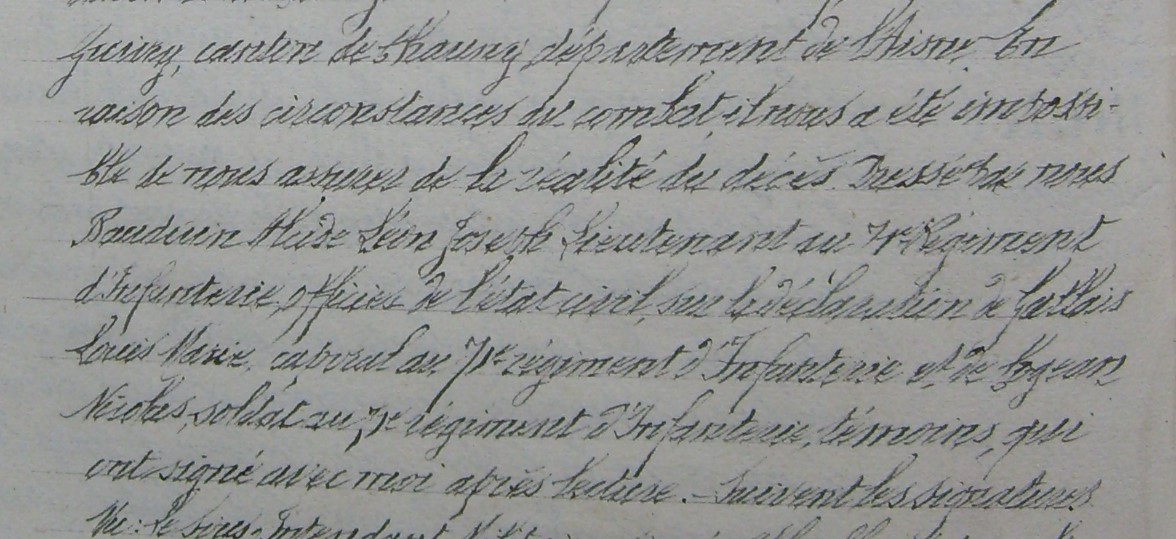 canton de Chauny département de l'Aisne En
raison des circonstances du combat, il nous a été impossi-
ble de nous assurer de la réalité du décès. Dressé par nous
Bauduin Léon Joseph Lieutenant au 71e Régiment
d'Infanterie, officier de l'état civil, sur la déclaration de
Louis Marie, caporal au 71e régiment d'Infanterie et de
Nicolas, soldat au 71e régiment d'Infanterie, témoins, qui
ont signé avec moi après lecture. - Suivent les signatures
Vu: Le sous-Intendant